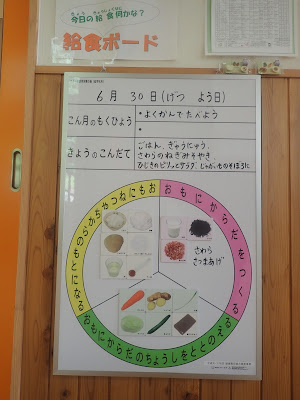 今日の給食何かな?
給食ボード
6月 30日(げつ よう日)
こん月のもくひょう
・よくかんでたべよう
・
きょうのこんだて
ごはん、ぎゅうにゅう、
さわらのねぎみそやき、
ひじきのピリッとサラダ、じゃがいものそぼろに
おもにからだをつくる
おもにからだのちょうしをととのえる
おもにねつやちからのもとになる
さわら
さつまあげ